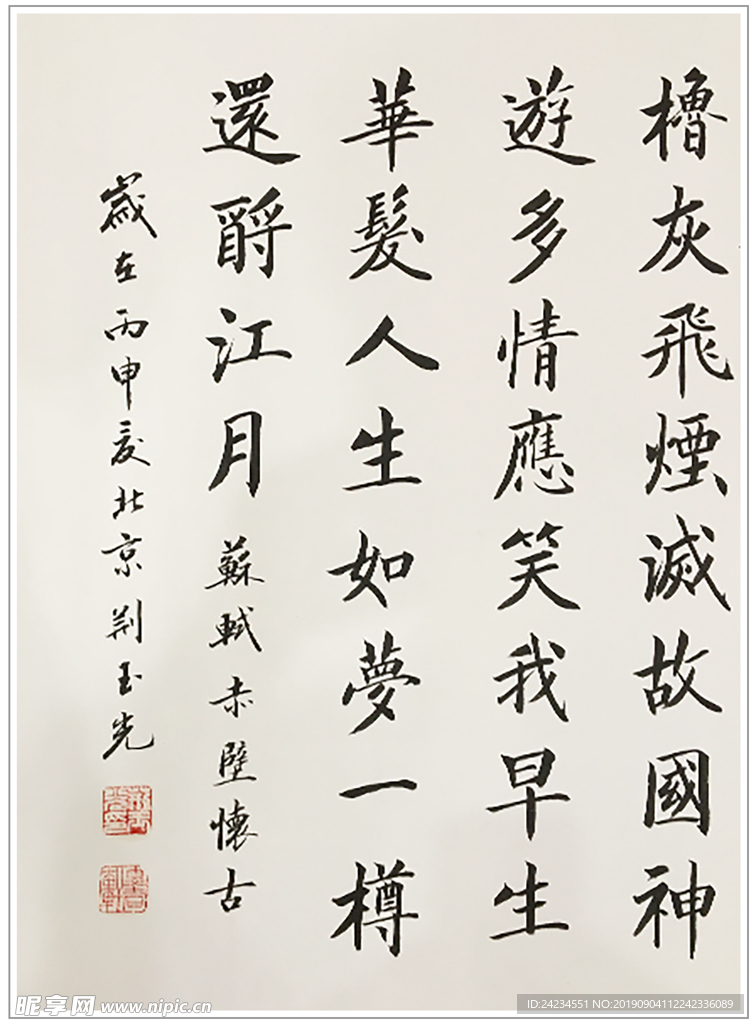 櫓灰飛煙滅故國神
遊多情應笑我早生
華髮人生如夢一樽
還酹江月 蘇軾赤壁懷古
歲在丙申夏北京荆玉光
昵享网 www.nipic.cn
ID:24234551 NO:20190904112242336089